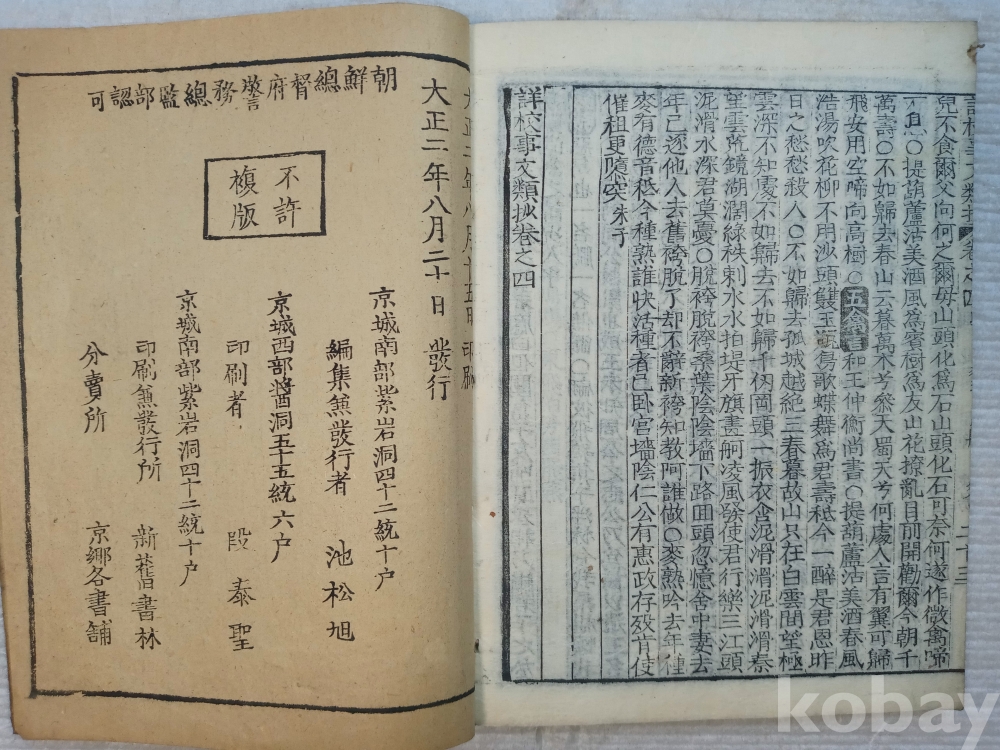 兒不食爾父向何之爾母山頭化爲石山頭化石可奈何遂作微禽啼
不息〇提葫蘆沽美酒風爲賓樹爲友山花撩亂目前開勸爾今朝千
萬壽〇不如歸去春山云暮萬木兮參天蜀天兮何處人言有翼可歸
飛安用空啼向高樹〇五禽言和王仲衡尚書〇提葫蘆沽美酒春風
浩湯吹花柳不用沙頭雙玉甁鳥歌蝶舞爲君壽秪今一醉是君恩昨
日之愁愁殺人〇不如歸去孤城越絶三春暮故山只在白雲間望極
雲深不知處不如歸去不如歸千仞岡頭一振衣〇泥滑滑泥滑滑秦
望雲荒鏡湖濶綠秧剌水水拍堤牙旗畫舸凌風發使君行樂三江頭
泥滑水深君莫憂〇脫袴脫袴桑葉陰陰墻下路回頭忽憶舍中妻去
年已逐他人去舊袴脫了却不辭新袴知教阿誰做〇麥熟吟去年種
麥有德音秪今種熟誰快活種者已卧官墻陰仁公有惠政存歿肯使
催租更隳突 朱子
詳校事文類抄卷之四
大正二年八月二十日 發行
朝鮮總督府警務總監部認可
不許
複版
京城南部紫岩洞四十二統十户
編集兼發行者 池松旭
京城西部醬洞五十五統六户
印刷者 段泰聖
京城南部紫岩洞四十二統十户
印刷兼發行所 新舊書林
分賣所 京鄉各書舖
kobay